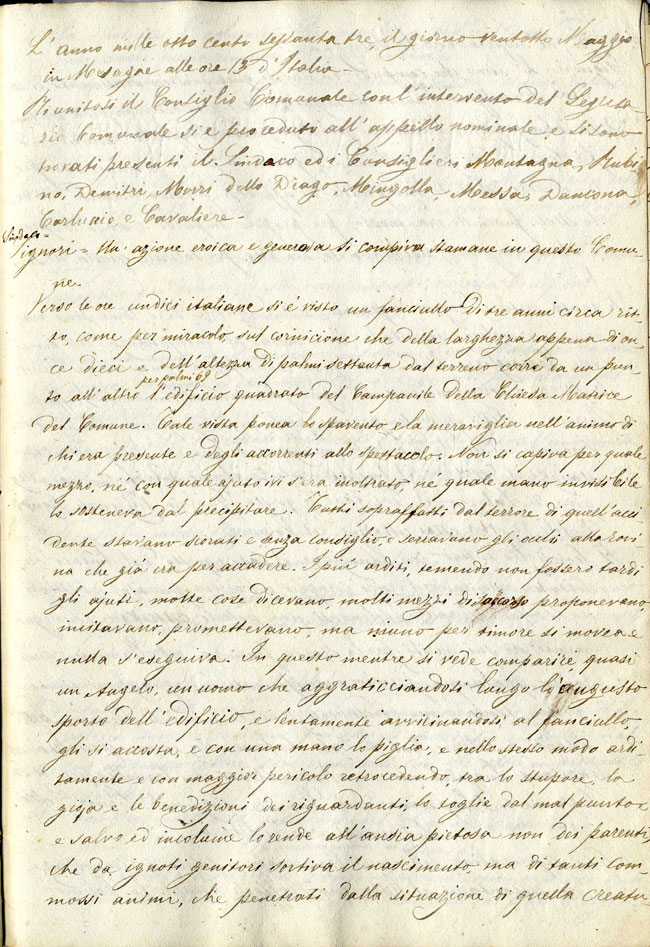 L'anno mille otto cento sessanta tre, il giorno ventotto Maggio
in Mesagne alle ore 13 d'Italia -
Riunitosi il Consiglio Comunale con l'intervento del Segreta-
rio Comunale si è proceduto all'appello nominale e si sono
trovati presenti il Sindaco ed i Consiglieri Montagna, Rubi-
no, Demitri, Morri dello Drago, Mingolla, Messa, Dancona,
Carluccio, e Cavaliere -
Sindaco -
Signori = Un'azione eroica e generosa si compiva stamane in questo Comu-
ne.
Verso le ore undici italiane si è visto un fanciullo di tre anni circa rit-
to, come per miracolo, sul cornicione che della larghezza appena di on-
ce dieci e dell'altezza di palmi settanta dal terreno corre da un pun-
to all'altro per palmi 69 l'edificio quadrato del Campanile della Chiesa Matrice
del Comune. Tale vista ponea lo spavento e la meraviglia nell'animo di
chi era presente e degli accorrenti allo spettacolo. Non si capiva per quale
mezzo, né con quale ajuto ivi s'era inoltrato, né quale mano invisibile
lo sosteneva dal precipitare. Tutti sopraffatti dal terrore di quell'acci-
dente stavano scorati e senza consiglio, e serravano gli occhi alla rovi-
na che già era per accadere. I più arditi, temendo non fossero tardi
gli ajuti, molte cose dicevano, molti mezzi di soccorso proponevano,
incitavano, promettevano, ma niuno per timore si movea e
nulla s'eseguiva. In questo mentre si vede comparire, quasi
un Angelo, un uomo che aggraticciandosi lungo lo angusto
sporto dell'edificio, e lentamente avvicinandosi al fanciullo
gli si accosta, e con una mano lo piglia, e nello stesso modo ardi-
tamente e con maggior pericolo retrocedendo, tra lo stupore, la
gioja e le benedizioni dei riguardanti, lo toglie dal mal punto
e salvo ed incolume lo rende all'ansia pietosa non dei parenti,
che da ignoti genitori sortiva il nascimento, ma di tanti com-
mossi animi, che penetrati dalla situazione di quella creatu-